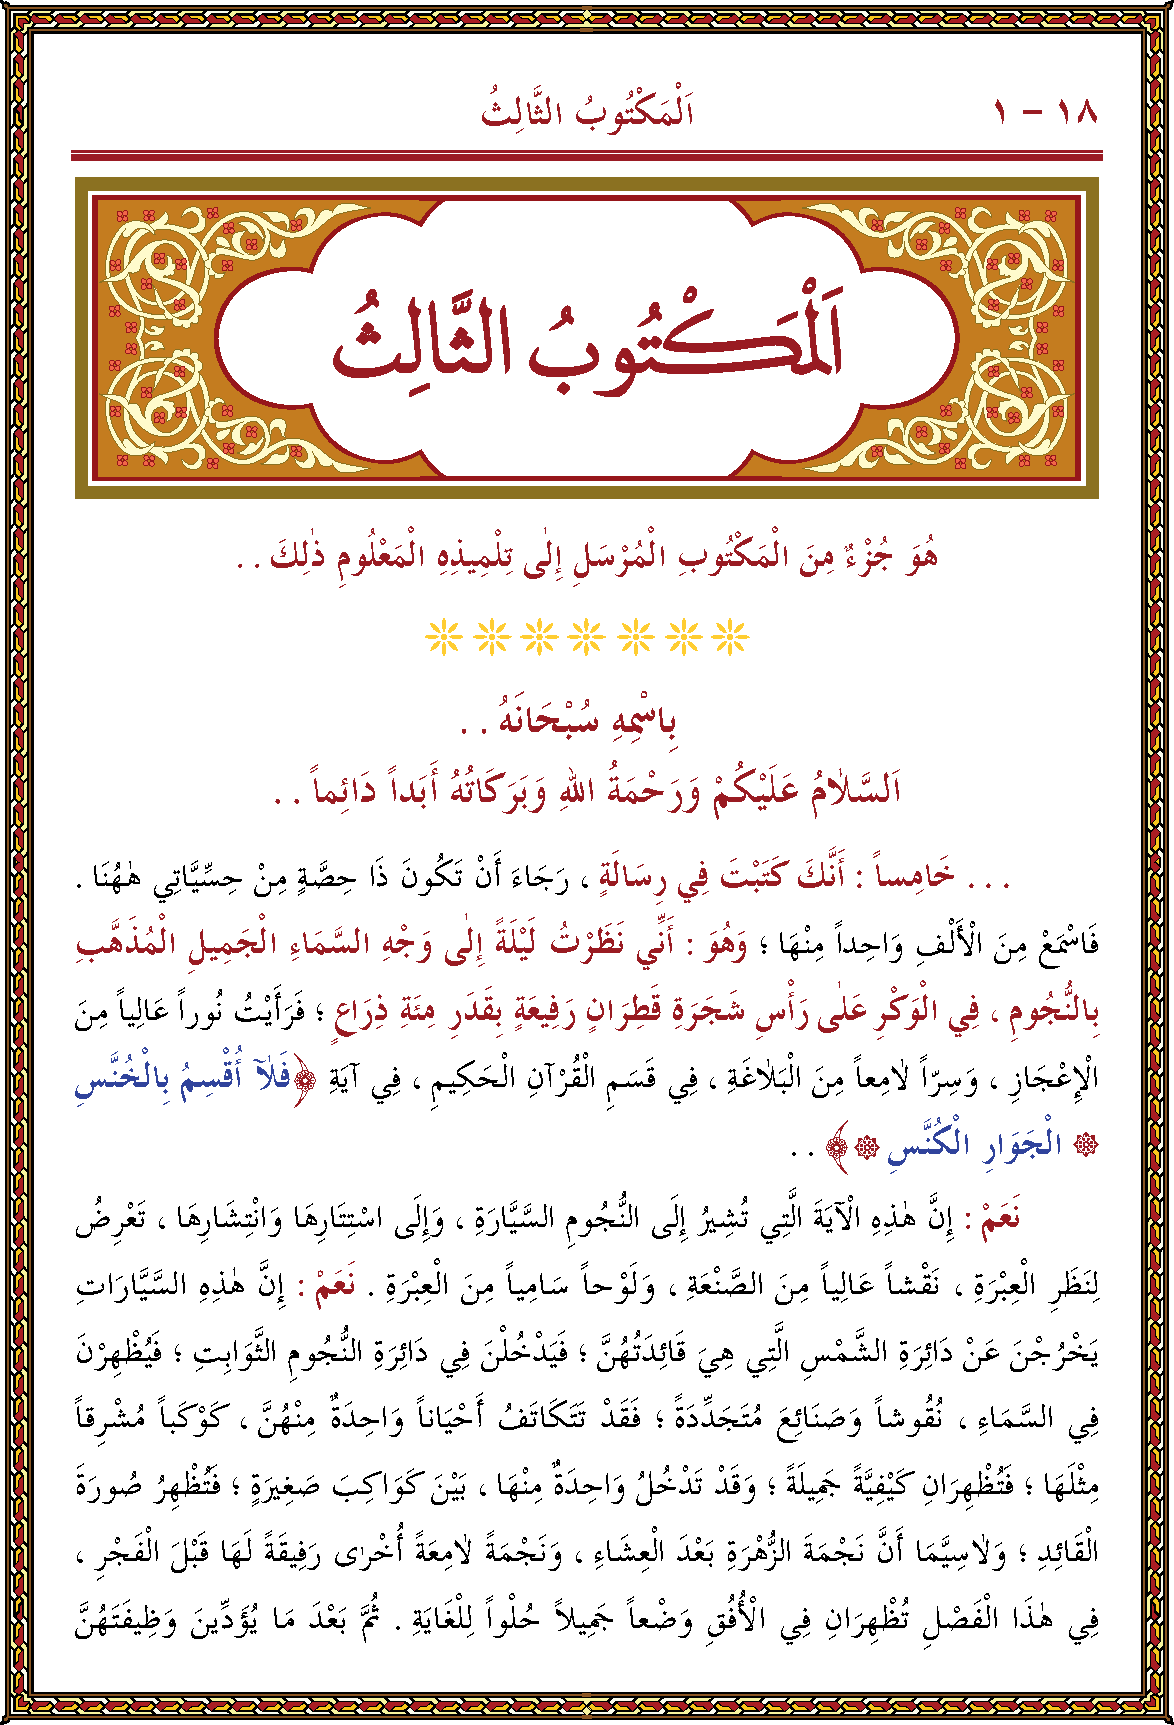 ١٨ – ١
اَلْمَكْتُوبُ الثَّالِثُ
اَلْمَكْتُوبُ الثَّالِثُ
هُوَ جُزْءٌ مِنَ الْمَكْتُوبِ الْمُرْسَلِ إِلٰى تِلْمِيذِهِ الْمَعْلُومِ ذٰلِكَ . .
بِاسْمِهِ سُبْحَانَهُ . .
اَلسَّلاٰمُ عَلَيْكُمْ وَرَحْمَةُ اللهِ وَبَرَكَاتُهُ أَبَداً دَائِماً . .
. . . خَامِساً : أَنَّكَ كَتَبْتَ فِي رِسَالَةٍ ، رَجَاءَ أَنْ تَكُونَ ذَا حِصَّةٍ مِنْ حِسِّيَّاتِي هٰهُنَا .
فَاسْمَعْ مِنَ الْأَلْفِ وَاحِداً مِنْهَا ؛ وَهُوَ : أَنِّي نَظَرْتُ لَيْلَةً إِلٰى وَجْهِ السَّمَاءِ الْجَمِيلِ الْمُذَهَّبِ
بِالنُّجُومِ ، فِي الْوَكْرِ عَلٰى رَأْسِ شَجَرَةِ قَطِرَانٍ رَفِيعَةٍ بِقَدَرِ مِئَةِ ذِرَاعٍ ؛ فَرَأَيْتُ نُوراً عَالِياً مِنَ
الْإِعْجَازِ ، وَسِرّاً لامِعاً مِنَ الْبَلاٰغَةِ ، فِي قَسَمِ الْقُرْآنِ الْحَكِيمِ ، فِي آيَةِ ﴿فَلآٰ أُقْسِمُ بِالْخُنَّسِ
۞ الْجَوَارِ الْكُنَّسِ ۞﴾ . .
نَعَمْ : إِنَّ هٰذِهِ الْآيَةَ الَّتِي تُشِيرُ إِلَى النُّجُومِ السَّيَّارَةِ ، وَإِلَى اسْتِتَارِهَا وَانْتِشَارِهَا ، تَعْرِضُ
لِنَظَرِ الْعِبْرَةِ ، نَقْشاً عَالِياً مِنَ الصَّنْعَةِ ، وَلَوْحاً سَامِياً مِنَ الْعِبْرَةِ . نَعَمْ : إِنَّ هٰذِهِ السَّيَّارَاتِ
يَخْرُجْنَ عَنْ دَائِرَةِ الشَّمْسِ الَّتِي هِيَ قَائِدَتُهُنَّ ؛ فَيَدْخُلْنَ فِي دَائِرَةِ النُّجُومِ الثَّوَابِتِ ؛ فَيُظْهِرْنَ
فِي السَّمَاءِ ، نُقُوشاً وَصَنَائِعَ مُتَجَدِّدَةً ؛ فَقَدْ تَتَكَاتَفُ أَحْيَاناً وَاحِدَةٌ مِنْهُنَّ ، كَوْكَباً مُشْرِقاً
مِثْلَهَا ؛ فَتُظْهِرَانِ كَيْفِيَّةً جَمِيلَةً ؛ وَقَدْ تَدْخُلُ وَاحِدَةٌ مِنْهَا ، بَيْنَ كَوَاكِبَ صَغِيَرةٍ ؛ فَتُظْهِرُ صُورَةَ
الْقَائِدِ ؛ وَلاٰسِيَّمَا أَنَّ نَجْمَةَ الزُّهْرَةِ بَعْدَ الْعِشَاءِ ، وَنَجْمَةً لاٰمَعِةً أُخْرٰى رَفِيقَةً لَهَا قَبْلَ الْفَجْرِ ،
فِي هٰذَا الْفَصْلِ تُظْهِرَانِ فِي الْأُفُقِ وَضْعاً جَمِيلاً حُلْواً لِلْغَايَةِ . ثُمَّ بَعْدَ مَا يُؤَدِّينَ وَظِيفَتَهُنَّ